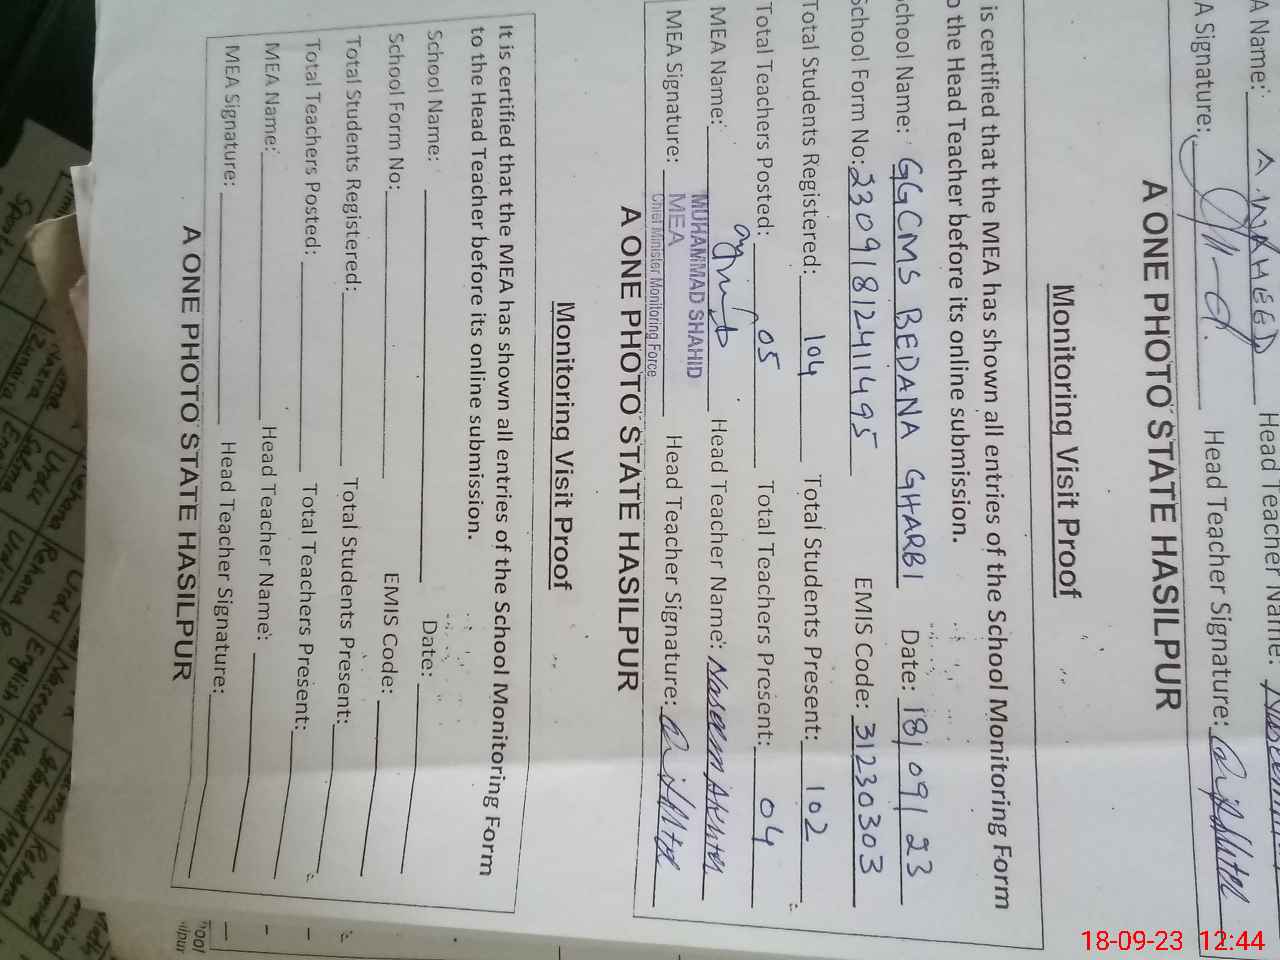 A Name: A. WAHEED Head Teacher Name:
A Signature: Head Teacher Signature:
A ONE PHOTO STATE HASILPUR
Monitoring Visit Proof
is certified that the MEA has shown all entries of the School Monitoring Form
o the Head Teacher before its online submission.
chool Name: GGCMS BEDANA GHARBI Date: 18/09/23
School Form No: 23091812411495 EMIS Code: 31230303
Total Students Registered: 104 Total Students Present: 102
Total Teachers Posted: 05 Total Teachers Present: 04
MEA Name: MUHAMMAD SHAHID Head Teacher Name: Naseem Akhter
MEA Signature: MEA Head Teacher Signature:
Chief Minister Monitoring Force
A ONE PHOTO STATE HASILPUR
Monitoring Visit Proof
It is certified that the MEA has shown all entries of the School Monitoring Form
to the Head Teacher before its online submission.
School Name: Date:
School Form No: EMIS Code:
Total Students Registered: Total Students Present:
Total Teachers Posted: Total Teachers Present:
MEA Name: Head Teacher Name:
MEA Signature: Head Teacher Signature:
A ONE PHOTO STATE HASILPUR
18-09-23 12:44